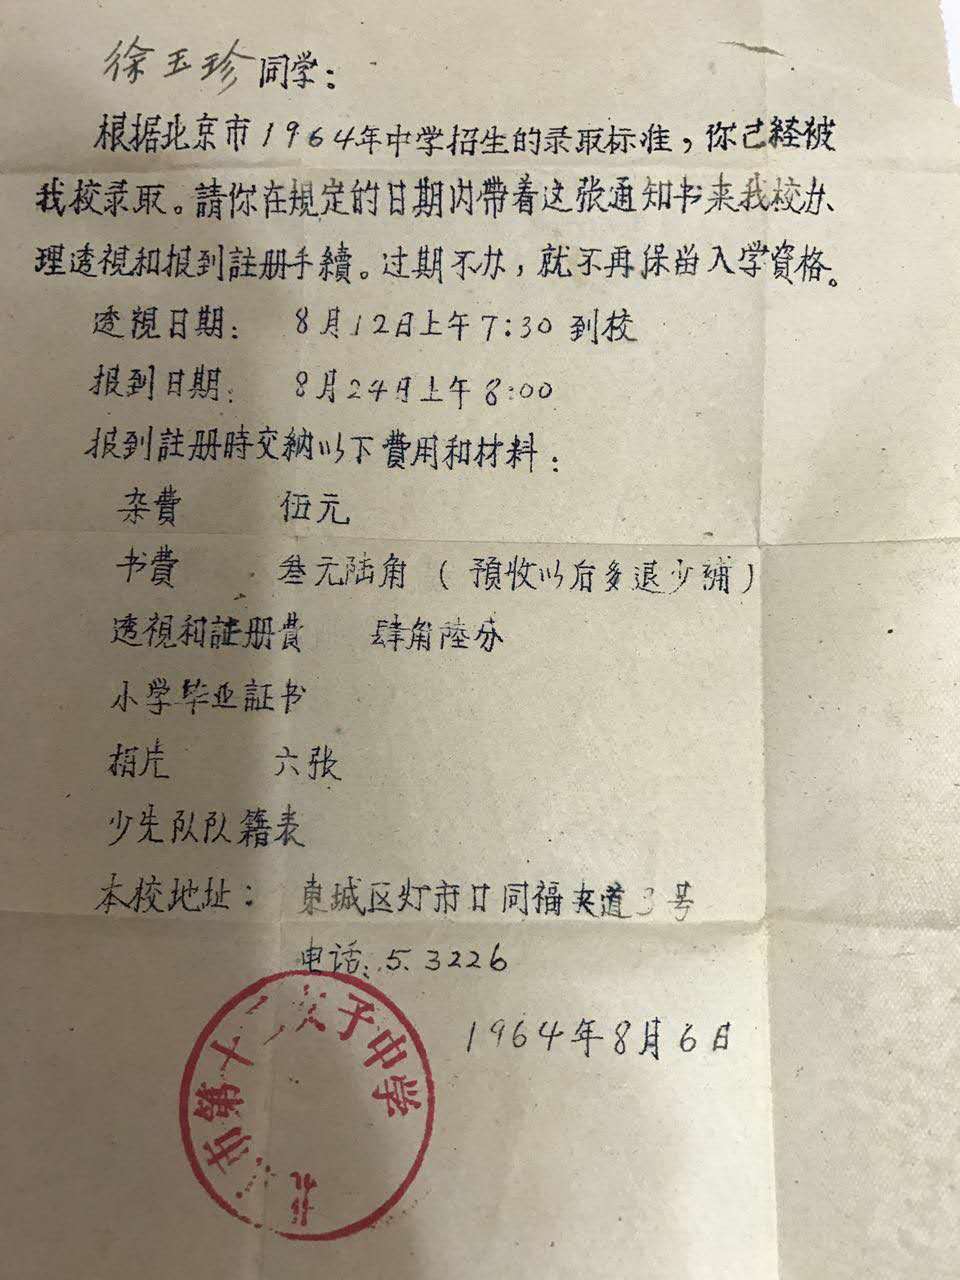 徐玉珍同学：
根据北京市1964年中学招生的录取标准，你已經被
我校录取。請你在規定的日期内帶着这张通知书来我校办
理透視和报到註册手續。过期不办，就不再保留入学資格。
透視日期： 8月12日上午7:30到校
报到日期： 8月24日上午8:00
报到註册時交納以下費用和材料：
杂費 伍元
书費 叁元陆角（預收以后多退少補）
透視和註册費 肆角陸分
小学毕业証书
相片 六张
少先队队籍表
本校地址： 東城区灯市口同福夹道3号
电话：5.3226
1964年8月6日
北京市第十二女子中学